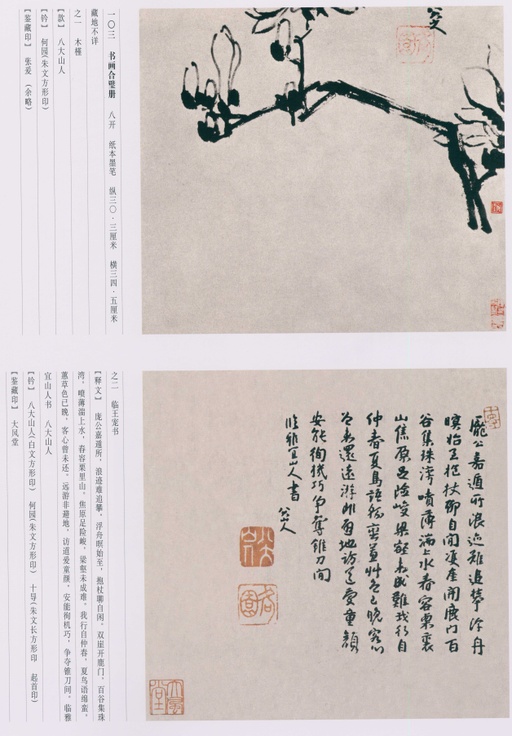 八大山人
一〇三 书画合璧册 八开 纸本墨笔 纵三〇·三厘米 横三四·五厘米
藏地不详
之一 木槿
【款】 八大山人
【钤】 何园(朱文方形印)
【鉴藏印】 张爰 (余略)
龐公嘉遁所浪迹難追攀浮舟
暝始至抱杖聊自閒雙崖開鹿門百
谷集珠灣噴薄湍上水舂容栗裏
山焦原足險峻梁壑未成難我行自
仲春夏鳥語綿蠻蕙艸色已晚客心
曾未還遠游非避地訪道愛童顏
安能徇機巧爭奪錐刀間
临雅宜山人書 八大山人
之二 临王宠书
【释文】 庞公嘉遁所,浪迹难追攀,浮舟暝始至,抱杖聊自闲,双崖开鹿门,百谷集珠
湾,喷薄湍上水,舂容栗里山,焦原足险峻,梁壑未成难,我行自仲春,夏鸟语绵蛮,
蕙草色已晚,客心曾未还,远游非避地,访道爱童颜,安能徇机巧,争夺锥刀间,临雅
宜山人书 八大山人
【钤】 八大山人(白文方形印) 何园(朱文方形印) 十导(朱文长方形印 起首印)
【鉴藏印】 大风堂